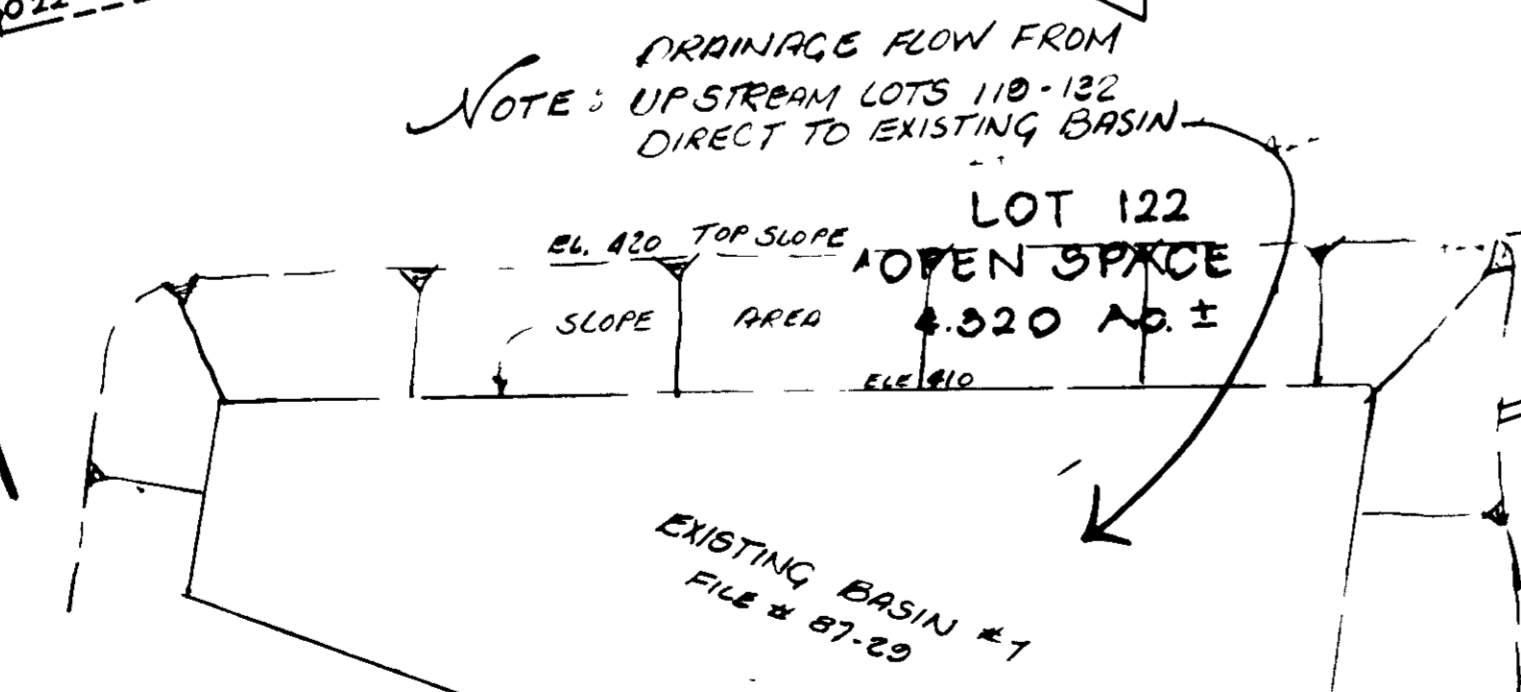 DRAINAGE FLOW FROM
NOTE: UPSTREAM LOTS 118-132
DIRECT TO EXISTING BASIN
LOT 122
OPEN SPACE
4.320 AC. ±
EL. 420 TOP SLOPE
SLOPE AREA
ELE 410
EXISTING BASIN #7
FILE # 87-29